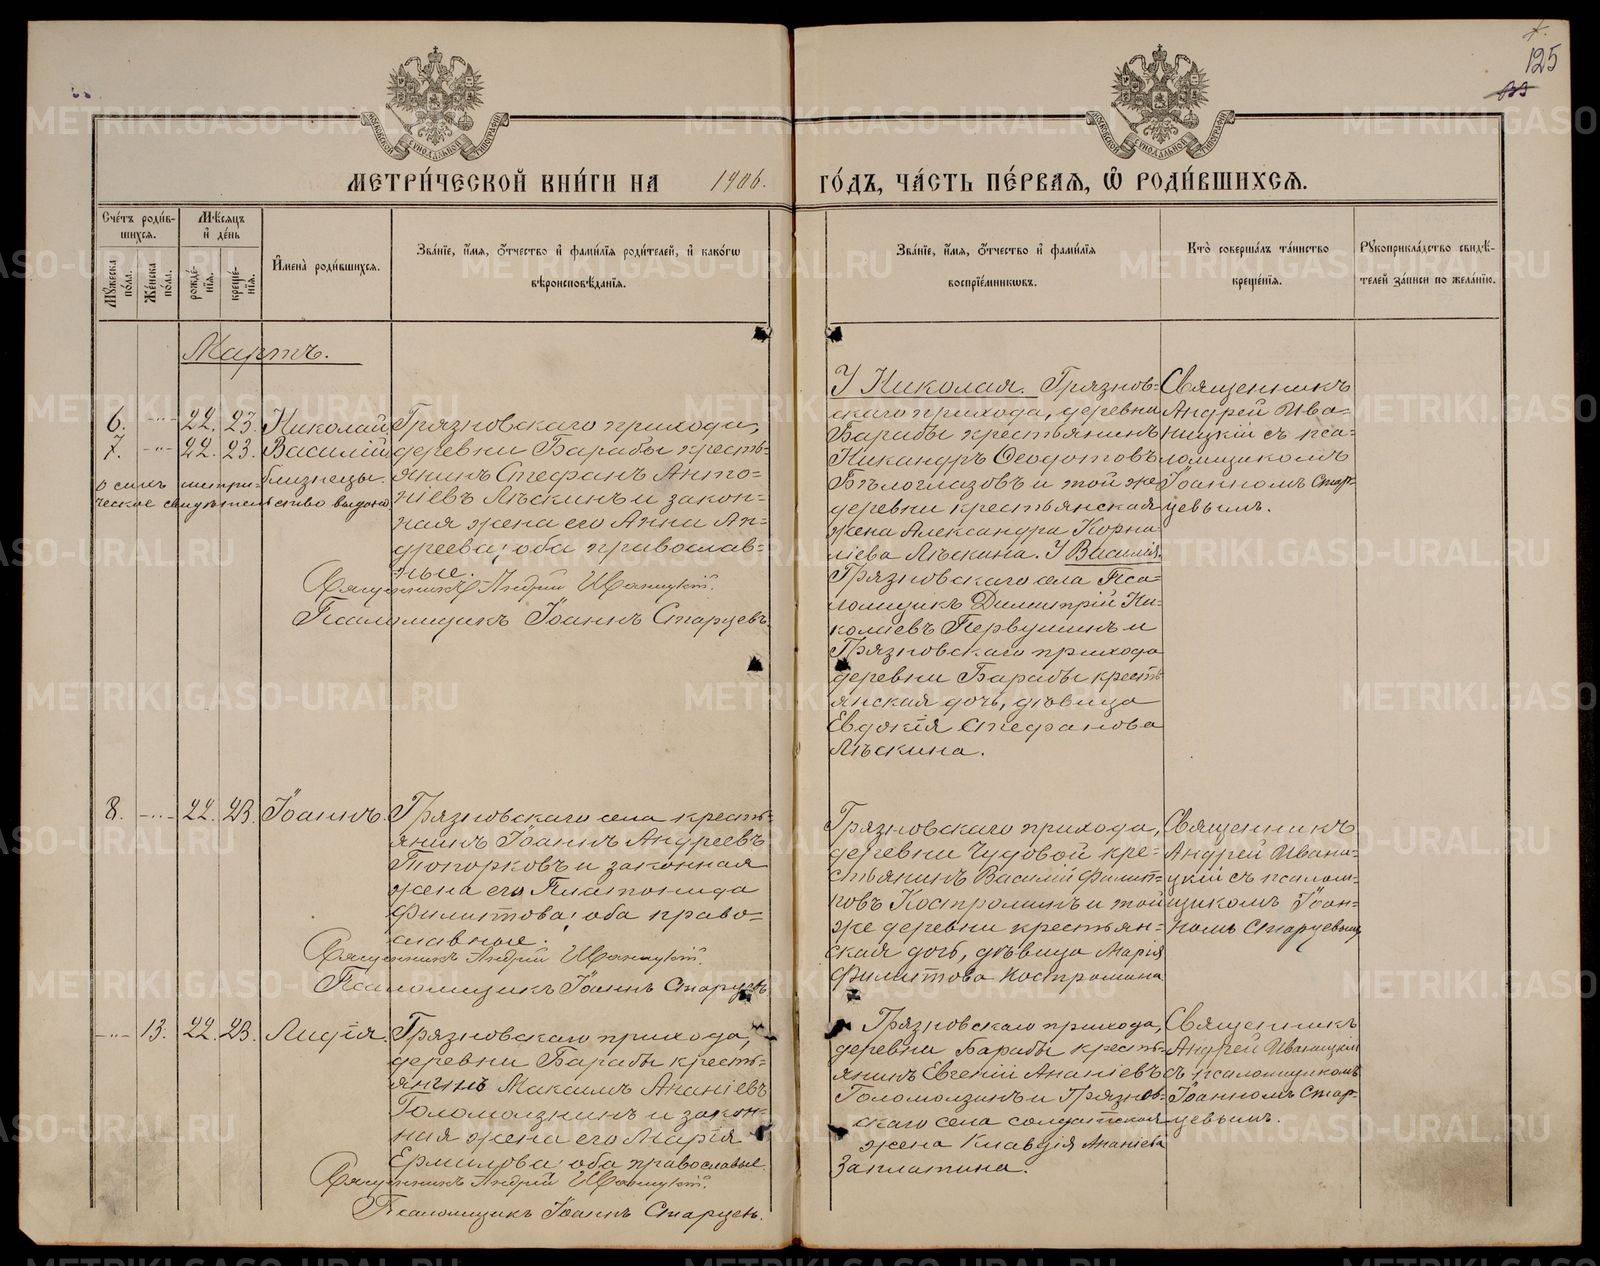 125
МОСКОВСКОЙ СѴНОДАЛЬНОЙ ТИПОГРАФІИ
МОСКОВСКОЙ СѴНОДАЛЬНОЙ ТИПОГРАФІИ
МЕТРИ́ЧЕСКОЙ КНИ́ГИ НА 1906. ГО́ДЪ, ЧА́СТЬ ПЕ́РВАѦ, Ѡ҆ РОДИ́ВШИХСѦ.
Сче́тъ роди́в-
шихсѧ.
Мꙋ́жеска по́ла.
Же́нска по́ла.
Мѣ́сѧцъ
и҆ де́нь
рожде́-
нїѧ.
креще́-
нїѧ.
И҆мена̀ роди́вшихсѧ.
Зва́нїе, и҆́мѧ, ѻ҆́тчество и҆ фами́лїѧ роди́телей, и҆ како́гѡ
вѣроисповѣ́данїѧ.
Зва́нїе, и҆́мѧ, ѻ҆́тчество и҆ фами́лїѧ
воспрїе́мникѡвъ.
Кто̀ соверша́лъ та́инство
креще́нїѧ.
Рꙋкоприкла́дство свидѣ́-
телей за́писи по жела́нїю.
Мартъ.
6. -"- 22. 23. Николай
7. -"- 22. 23. Василій
близнецы.
о сихъ метри-
ческое свидѣтельство выдано
Грязновскаго прихода,
деревни Барабы кресть-
янинъ Стефанъ Анто-
ніевъ Лѣскинъ и закон-
ная жена его Анна Ан-
дреева; оба православ-
ные.
Священникъ Андрей Иваницкій.
Псаломщикъ Іоаннъ Старцевъ.
У Николая. Грязнов-
скаго прихода, деревни
Барабы крестьянинъ
Никандръ Ѳеодотовъ
Бѣлоглазовъ и той же
деревни крестьянская
жена Александра Корни-
ліева Лѣскина. У Василія.
Грязновскаго села Пса-
ломщикъ Димитрій Ни-
колаевъ Первушинъ и
Грязновскаго прихода
деревни Барабы кресть
янская дочь, дѣвица
Евдокія Стефанова
Лѣскина.
Священникъ
Андрей Ива-
ницкій съ пса-
ломщикомъ
Іоанномъ Стар-
цевымъ.
8. -"- 22. 23. Іоаннъ.
Грязновскаго села кресть-
янинъ Іоаннъ Андреевъ
Топорковъ и законная
жена его Платонида
Филиппова; оба право-
славные.
Священникъ Андрей Иваницкій.
Псаломщикъ Іоаннъ Старцевъ
Грязновскаго прихода,
деревни Чудовой кре-
стьянинъ Василій Филип-
повъ Костроминъ и той
же деревни крестьян-
ская дочь, дѣвица Марія
Филиппова Костромина
Священникъ
Андрей Ивани-
цкій съ псалом-
щикомъ Іоан-
номъ Старцевымъ
-"- 13. 22. 23. Лидія.
Грязновскаго прихода,
деревни Барабы кресть-
янинъ Максимъ Ананіевъ
Голомолзинъ и закон-
ная жена его Марія
Ермилова; оба православные.
Священникъ Андрей Иваницкій.
Псаломщикъ Іоаннъ Старцевъ.
Грязновскаго прихода,
деревни Барабы кресть-
янинъ Евгеній Ананіевъ
Голомолзинъ и Грязнов-
скаго села солдатская
жена Клавдія Ананіева
Заплатина.
Священникъ
Андрей Иваницкій
съ псаломщикомъ
Іоанномъ Стар-
цевымъ.
METRIKI.GASO-URAL.RU